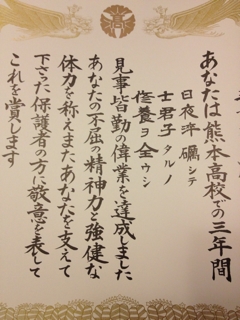 高
あなたは熊本高校での三年間
日夜淬礪シテ
士君子タルノ
修養ヲ全ウシ
見事皆勤の偉業を達成しました
あなたの不屈の精神力と強健な
体力を称えまたあなたを支えて
下さった保護者の方に敬意を表して
これを賞します